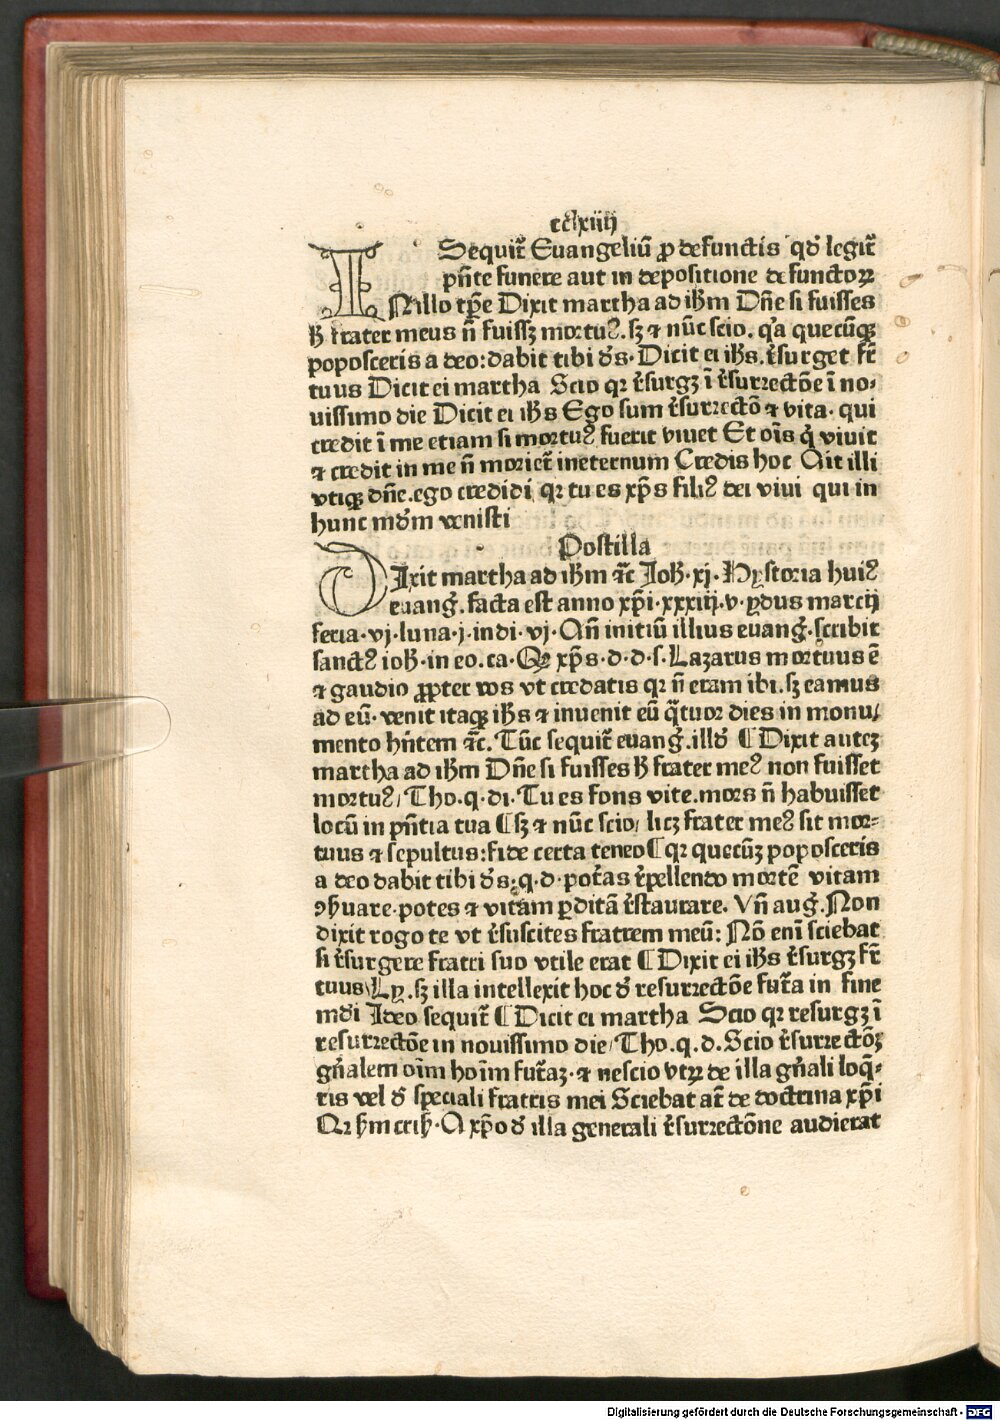 cclxiiij
Sequit̄ Euangeliū ꝓ defunctis qd̕ legit̄
pn̄te funere aut in depositione defunctoꝝ
INillo tꝑe Dixit martha ad ih̄m Dn̄e si fuisses
h̕ frater meus n̄ fuissꝫ mortuꝰ.sꝫ ⁊ nūc scio. qꝛa quecūqꝫ
poposceris a deo:dabit tibi d̕s. Dicit ei ih̄s.r̕surget fr̄
tuus Dicit ei martha Scio qꝛ r̕surgꝫ ī r̕surrectōe ī no⸗
uissimo die Dicit ei ih̄s Ego sum r̕surrectō ⁊ vita. qui
credit ī me etiam si mortuꝰ fuerit viuet Et oīs q̕ viuit
⁊ credit in me n̄ moriet̄ ineternum Credis hoc Ait illi
vtiqꝫ dn̄e.ego credidi qꝛ tu es xp̄s filiꝰ dei vivi qui in
hunc md̕m venisti
Postilla
DIxit martha ad ih̄m ⁊c̄ Joh̕.xj.Hystoria huiꝰ
euang̕. facta est anno xp̄i.xxxiiij.v.ydus marcij
feria.vj.luna.j.indi.vj.An̄ initiū illius euang̕.scribit
sanctꝰ ioh̕.in eo.ca.Qꝛ xp̄s.d.d.s.Lazarus mortuus ē
⁊ gaudio ꝓpter vos vt credatis qꝛ n̄ eram ibi.sꝫ eamus
ad eū.venit itaqꝫ ih̄s ⁊ inuenit eū q̄tuor dies in monu/
mento hn̄tem ⁊c̄. Tūc sequit̄ euang̕.illd̕ ¶ Dixit auteꝫ
martha ad ih̄m Dn̄e si fuisses h̕ frater meꝰ non fuisset
mortuꝰ/Tho.q.di.Tu es fons vite.mors n̄ habuisset
locū in pn̄tia tua ¶ sꝫ ⁊ nūc scio/ licꝫ frater meꝰ sit mor⸗
tuus ⁊ sepultus:fide certa teneo ¶ qꝛ quecūꝫ poposceris
a deo dabit tibi d̕s:q.d.pot̄as r̕pellendo mortē vitam
ꝯẜuare.potes ⁊ vitam ꝑditā r̕staurare. Vn̄ aug̕.Non
dixit rogo te vt r̕suscites fratrem meū: Nō enī sciebat
si r̕surgere fratri suo vtile erat ¶ Dixit ei ih̄s r̕surgꝫ fr̄
tuus\Ly.sꝫ illa intellexit hoc d̕ resurrectōe fut̄a in fine
md̕i Ideo sequit̄ ¶ Dicit ei martha Scio qꝛ resurgꝫ ī
resurrectōe in nouissimo die/Tho.q.d.Scio r̕surrectōꝫ
gn̄alem oīm hoīm fut̄aꝫ.⁊ nescio vtꝝ de illa gn̄ali loq̄⸗
ris vel d̕ speciali fratris mei Sciebat at̄ de doctrina xp̄i
A xp̄o d̕ illa generali r̕surrectōne audierat
Digitalisierung gefördert durch die Deutsche Forschungsgemeinschaft - DFG